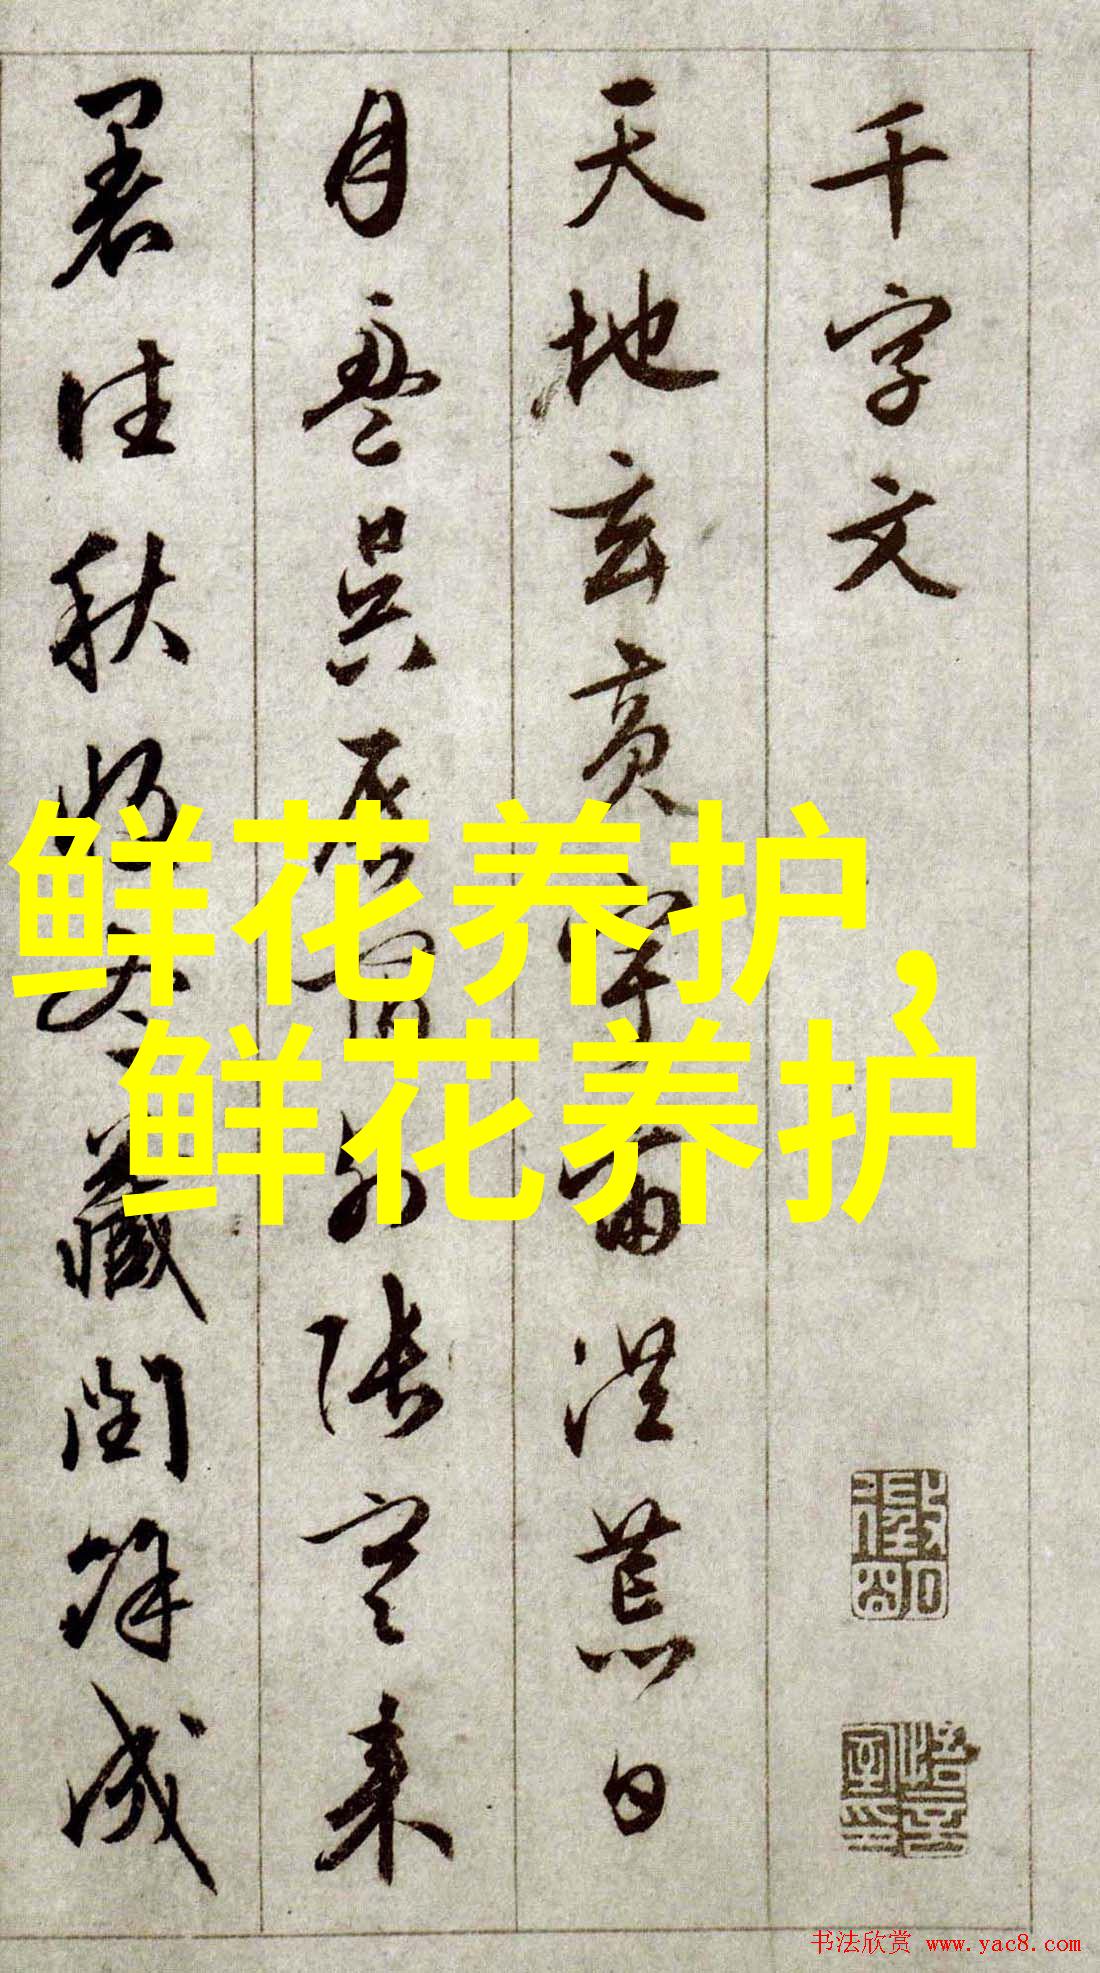 千字文
天地玄黄宇宙洪荒日
月盈昃辰宿列张寒来
暑往秋收冬藏闰馀成
鲜花养护,
鲜花养护
书法欣赏 www.yac8.com